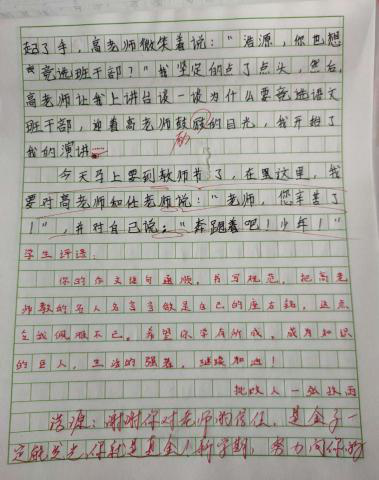 起了手，高老师微笑着说："浩源，你也想
竞选班干部？"我坚定的点了点头，然后，
高老师让我上讲台谈一谈为什么要竞选语文
班干部，迎着高老师鼓励的目光，我开始了
我的演讲……
今天马上要到教师节了，在这里，我
要对高老师和任老师说："老师，您辛苦了
！"，并对自己说："奔跑着吧！少年！"
学生评语：
你的作文语句通顺，书写规范，把高老
师教的名人名言当做是自己的座右铭，这点
令我佩服不已。希望你学有所成，成为知识
的巨人，生活的强者，继续加油！
批改人一
浩源：谢谢你对老师的信任，是金子一
定能发光，你就是真金！新学期，努力向你的